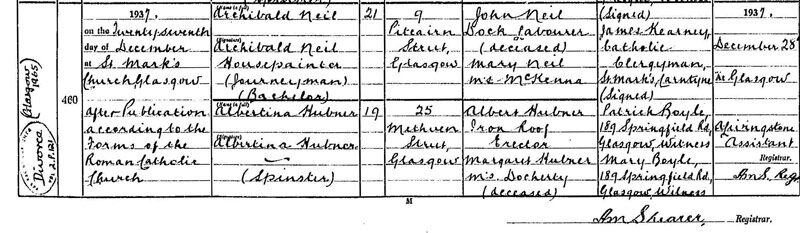 1937.
on the Twenty seventh
day of December
at St. Mark's
Church, Glasgow
After Publication
according to the
Forms of the
Roman Catholic
Church
460
Divorce
Glasgow
1965
Archibald Neil
(Signed)
Archibald Neil
Housepainter
(Journeyman)
(Bachelor)
Albertina Hubner
Albertina Hubner
(Spinster)
21
19
9
Pitcairn
Street,
Glasgow
25
Methven
Street,
Glasgow
John Neil
Dock Labourer
(deceased)
Mary Neil
m's McKenna
Albert Hubner
Iron Roof
Erector
Margaret Hubner
m's Docherty
(deceased)
(Signed)
James Kearney
Catholic
Clergyman,
St Mark's, Carntyne
(Signed)
Patrick Boyle,
189 Springfield Rd,
Glasgow, Witness
Mary Boyle,
189 Springfield Rd,
Glasgow, Witness
1937.
December 28th
At Glasgow
Assistant
Registrar.
M
Am Shearer, Registrar.